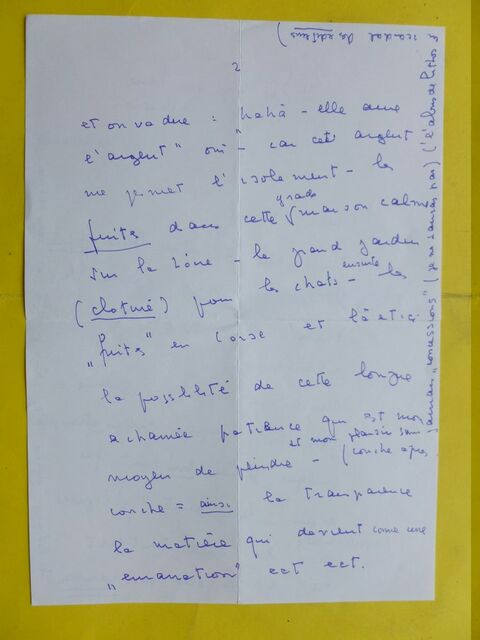 2
et on va dire : "haha - elle aime
l'argent" oui - car cet argent
me permet l'isolement - la
fuite dans cette grade maison calme
sur la Loire - le grand jardin
(cloturé) pour les chats - ensuite les
"fuites" en Corse et là et ici
la possibilité de cette longue
acharnée patience qui est mon
moyen de peindre - et mon plaisir sans (couche après
couche = ainsi la transparence
la matière qui devient come une
"emanation" ect ect.
jamais "concessions" (je ne saurais pas) (l'album de lithos
scandal des editeurs)